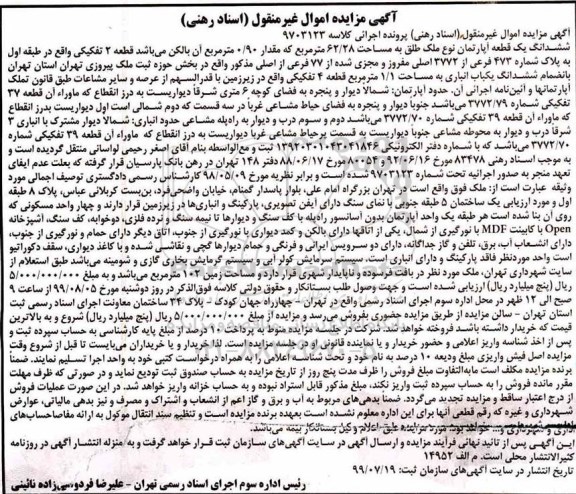 آگهی مزایده اموال غیرمنقول (اسناد رهنی)
آگهی مزایده اموال غیرمنقول (اسناد رهنی) پرونده اجرائی کلاسه ۹۷۰۳۱۲۳
ششدانگ یک قطعه آپارتمان نوع ملک طلق به مساحت ۶۲/۲۸ مترمربع که مقدار ۰/۹۰ مترمربع آن بالکن می‌باشد قطعه ۲ تفکیکی واقع در طبقه اول
به پلاک شماره ۴۷۳ فرعی از ۳۷۷۲ اصلی مفروز و مجزی شده از ۷۷ فرعی از اصلی مذکور واقع در بخش حوزه ثبت ملک پیروزی تهران استان تهران
بانضمام ششدانگ یکباب انباری به مساحت ۱/۱ مترمربع قطعه ۴ تفکیکی واقع در زیرزمین با قدرالسهم از عرصه و سایر مشاعات طبق قانون تملک
آپارتمانها و آئین‌نامه اجرائی آن. حدود آپارتمان: شمالا دیوار و پنجره به فضای کوچه ۶ متری شرقاً دیواریست به درز انقطاع که ماوراء آن قطعه ۳۷
تفکیکی شماره ۳۷۷۲/۷۹ می‌باشد جنوبا دیوار و پنجره به فضای حیاط مشاعی غرباً در سه قسمت که دوم شمالی است اول دیواریست بدرز انقطاع
که ماوراء آن قطعه ۳۹ تفکیکی شماره ۳۷۷۲/۷۰ می‌باشد دوم و سوم درب و دیوار به راه‌پله مشاعی حدود انباری: شمالا دیوار مشترک با انباری ۳
شرقا درب و دیوار به محوطه مشاعی جنوبا دیواریست به قسمت پرحیاط مشاعی غربا دیواریست به درز انقطاع که ماوراء آن قطعه ۳۹ تفکیکی شماره
۳۷۷۲/۷۰ می‌باشد که با شماره دفتر الکترونیکی ۱۳۹۲۰۳۰۱۰۴۳۰۴۱۸۴۶ ثبت و مع‌الواسطه بنام آقای اصغر رحیمی لواسانی منتقل گردیده است و
به موجب اسناد رهنی ۸۳۴۷۸ مورخ ۸۶/۰۶/۱۶ و ۵۴۰۴ مورخ ۸۸/۰۶/۱۷ دفتر ۱۴۸ تهران در رهن بانک پارسیان قرار گرفته که بعلت عدم ایفای
تعهد منجر به صدور اجرائیه تحت شماره ۹۷۰۳۱۲۳ شده است و برابر نظریه مورخ ۹۸/۰۵/۰۹ کارشناس رسمی دادگستری توصیف اجمالی مورد
وثیقه عبارت است از: ملک فوق واقع است در تهران بزرگراه امام علی، بلوار پاسدار گمنام، خیابان واضحی‌فرد، بن‌بست کربلائی عباس، پلاک ۸ طبقه
اول و مورد ارزیابی یک ساختمان ۵ طبقه جنوبی با نمای سنگ دارای آیفن تصویری، پارکینگ و انباری‌ها در زیرزمین قرار دارند و چهار واحد مسکونی که
روی آن بنا شده است هر طبقه یک واحد آپارتمان بدون آسانسور راه‌پله با کف سنگ و دیوارها تا نیمه سنگ و نرده فلزی، دوخوابه، کف سنگ، آشپزخانه
Open با کابینت MDF با نورگیری از شمال، یکی از اتاقها دارای بالکن و کمد دیواری با نورگیری از جنوب، اتاق دیگر دارای حمام و نورگیری از جنوب،
دارای انشعاب آب، برق، تلفن و گاز جداگانه، دارای دو سرویس ایرانی و فرنگی و حمام دیوارها گچی و نقاشی شده و با کاغذ دیواری، سقف دکوراتیو
است واحد موردنظر فاقد پارکینگ و دارای انباری است. سیستم سرمایش کولر آبی و سیستم گرمایش بخاری گازی و شومینه می‌باشد طبق استعلام از
سایت شهرداری تهران، ملک مورد نظر در بافت فرسوده و ناپایدار شهری قرار دارد. مساحت زمین ۱۰۲ مترمربع می‌باشد و به مبلغ ۵/۰۰۰/۰۰۰/۰۰۰
ریال (پنج میلیارد ریال) ارزیابی شده است و جهت وصول طلب بستانکار و حقوق دولتی کلاسه فوق‌الذکر در روز دوشنبه مورخ ۹۹/۰۸/۰۵ از ساعت ۹
صبح الی ۱۲ ظهر در محل اداره سوم اجرای اسناد رسمی واقع در تهران - چهارراه جهان کودک - پلاک ۳۴ ساختمان معاونت اجرای اسناد رسمی ثبت
استان تهران - سالن مزایده از طریق مزایده حضوری بفروش می‌رسد و مزایده از مبلغ ۵/۰۰۰/۰۰۰/۰۰۰ ریال (پنج میلیارد ریال) شروع و به بالاترین
قیمت که خریدار داشته باشد فروخته خواهد شد. شرکت در جلسه مزایده منوط به پرداخت ۱۰ درصد از مبلغ پایه کارشناسی به حساب سپرده ثبت و
پس از اخذ شناسه واریز اعلامی و حضور خریدار و یا نماینده قانونی او در جلسه مزایده است. لذا خریدار و یا خریداران می‌بایست تا قبل از شروع وقت
مزایده اصل فیش واریزی مبلغ ودیعه ۱۰ درصد به نام خود و با قید شناسه اعلامی را به همراه درخواست کتبی خود به واحد اجرا تسلیم نمایند. ضمناً
برنده مزایده مکلف است مابه‌التفاوت مبلغ فروش را ظرف مدت پنج روز از تاریخ مزایده به حساب صندوق ثبت تودیع نماید و در صورتی که ظرف مهلت
مقرر مانده فروش را به حساب سپرده ثبت واریز نکند، مبلغ مذکور قابل استرداد نبوده و به حساب خزانه واریز خواهد شد. در این صورت عملیات فروش
از درجه اعتبار ساقط و مزایده تجدید می‌گردد. ضمنا بدهی‌های مربوط به آب و برق و گاز اعم از انشعاب و اشتراک و مصرف و نیز بدهی مالیاتی، عوارض
شهرداری و غیره که رقم قطعی آنها برای این اداره معلوم نشده است بعهده برنده مزایده است و تنظیم سند انتقال موکول به ارائه مفاصاحساب‌های
دارائی و شهرداری و... خواهد بود. مورد مزایده طبق اعلام وکیل بستانکار بیمه می‌باشد.
این آگهی پس از تائید نهائی فرآیند مزایده و ارسال آگهی در سایت آگهی‌های سازمان ثبت قرار خواهد گرفت و به منزله انتشار آگهی در روزنامه
کثیرالانتشار محلی است. م الف ۱۴۹۵۲
تاریخ انتشار در سایت آگهی‌های سازمان ثبت: ۹۹/۰۷/۱۹
رئیس اداره سوم اجرای اسناد رسمی تهران - علیرضا فردوسی‌زاده نائینی